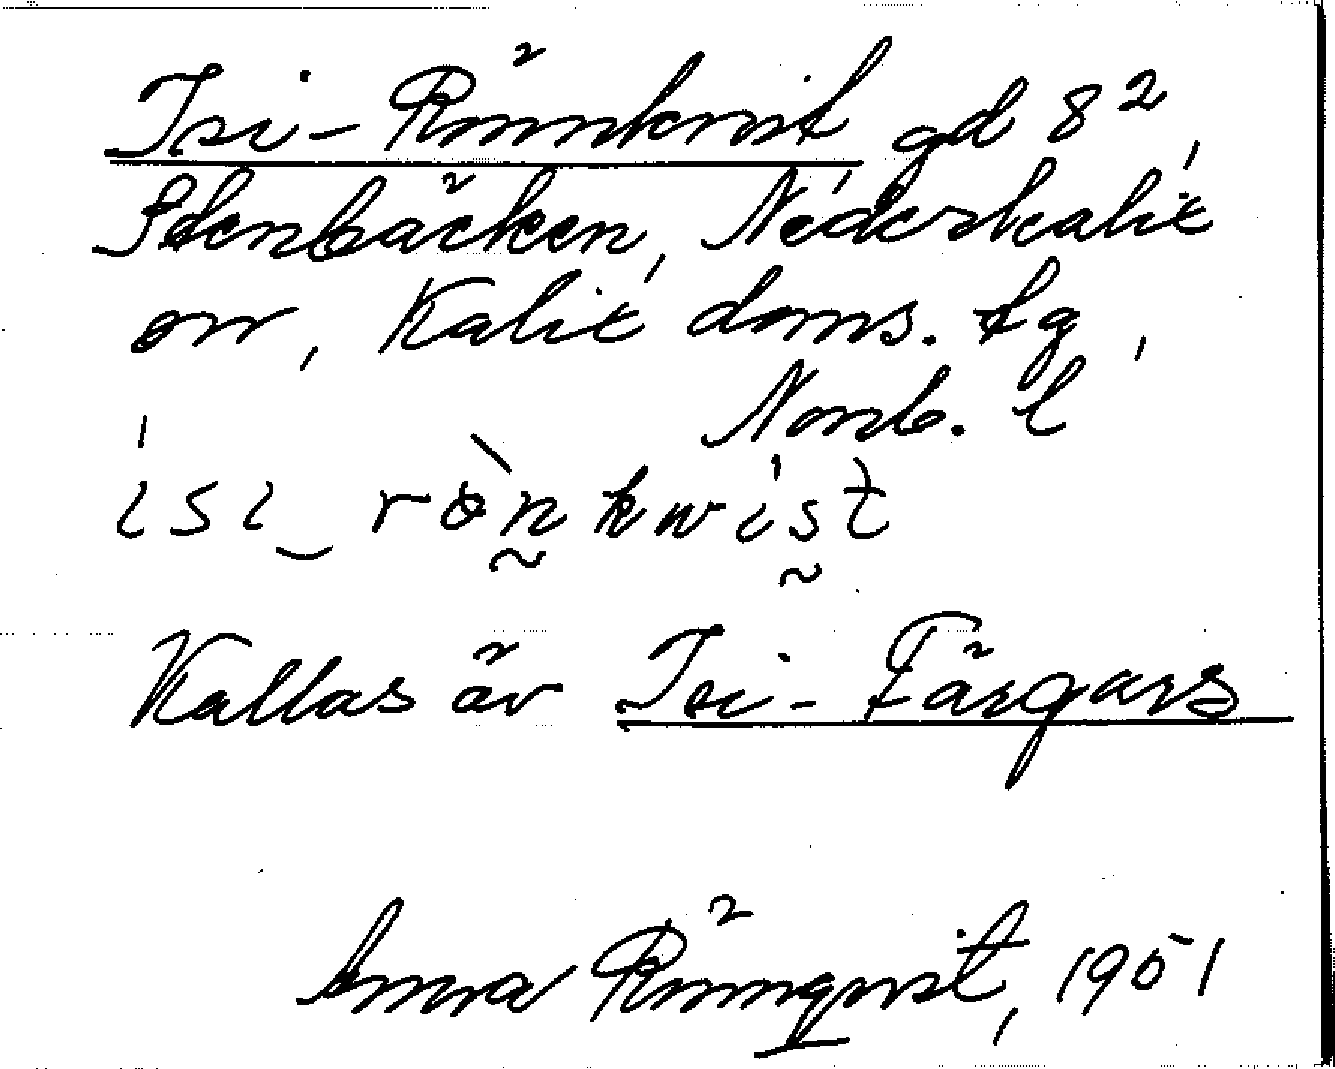 Isi-Rönnkvist, gd 8²,
Stenbäcken, Nederkalix
sn, Kalix doms. tg,
Norrb. l
isi_rönkwist
Kallas äv Isi-Färgars
Anna Rönnqvist, 1951